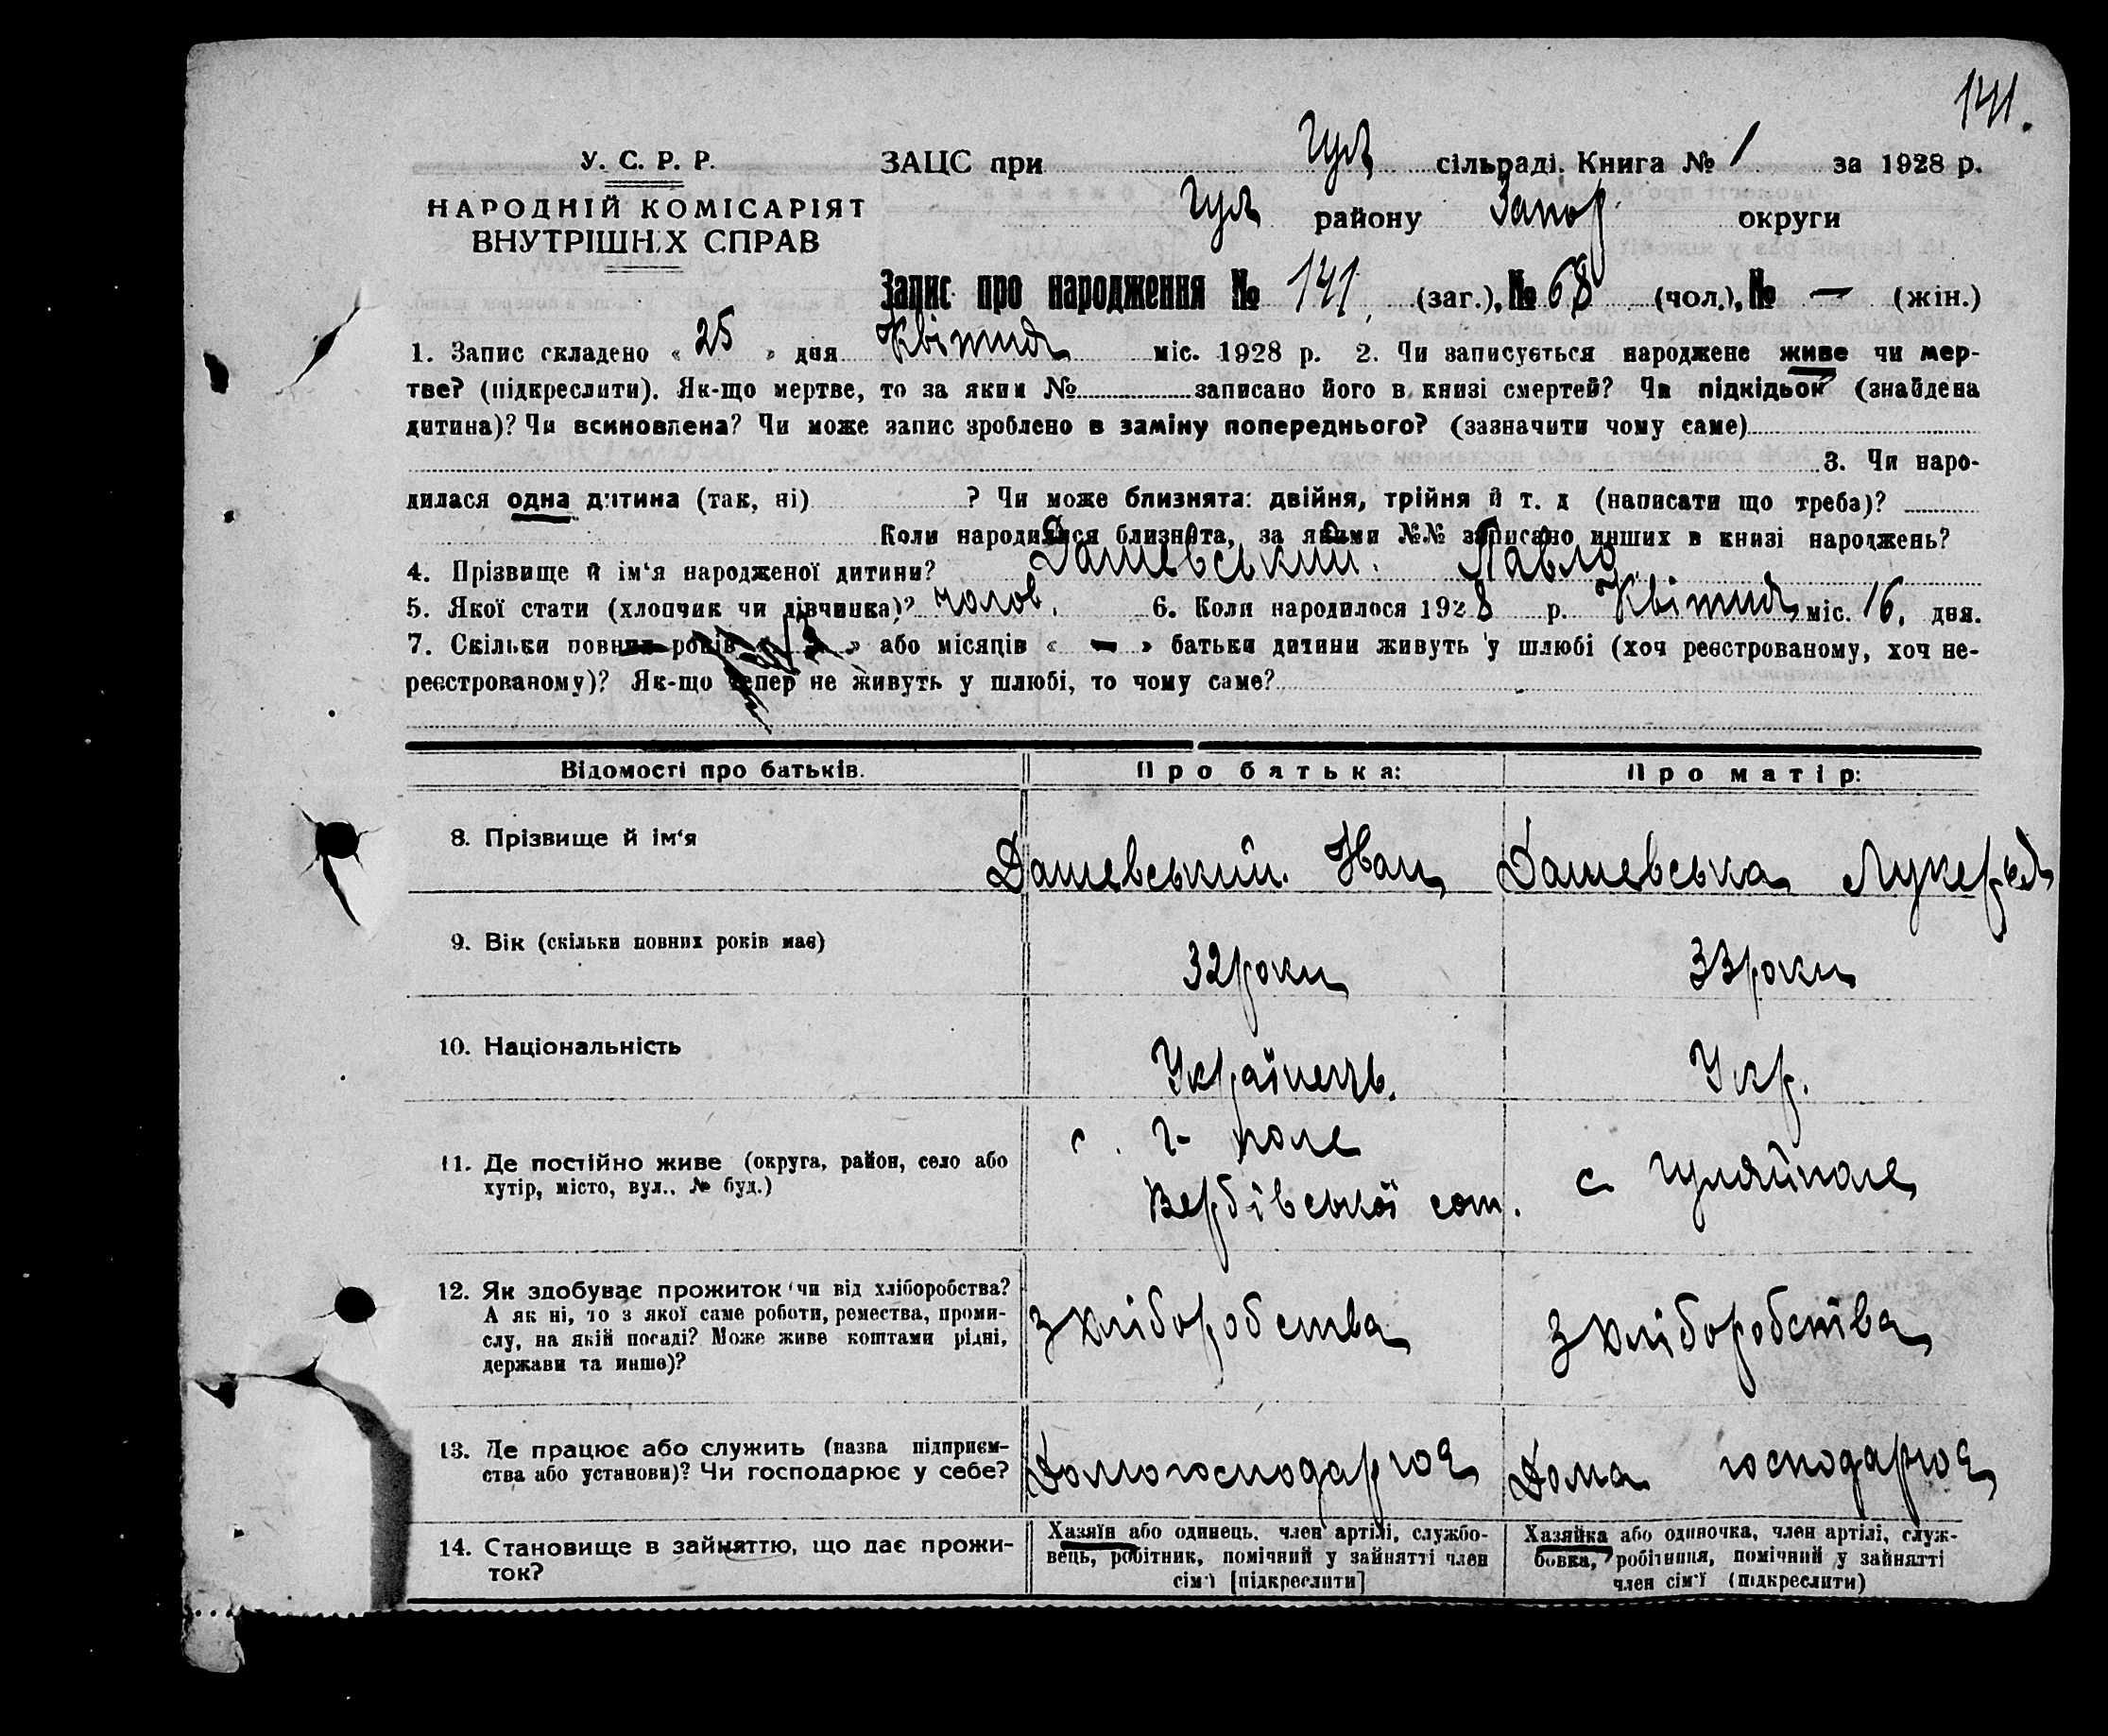 141.
У. С. Р. Р.
НАРОДНІЙ КОМІСАРІЯТ
ВНУТРІШНІХ СПРАВ
ЗАЦС при Гул сільраді. Книга № 1 за 1928 р.
Гул району Запор округи
Запис про народження № 141 (заг.), № 68 (чол.), № — (жін.)
1. Запис складено « 25 » дня Квітня міс. 1928 р. 2. Чи записується народжене живе чи мер-
тве? (підкреслити). Як-що мертве, то за яким № записано його в книзі смертей? Чи підкідьок (знайдена
дитина)? Чи всиновлена? Чи може запис зроблено в заміну попереднього? (зазначити чому саме)
3. Чи наро-
дилася одна дитина (так, ні) ? Чи може близнята: двійня, трійня й т. д (написати що треба)?
Коли народилися близнята, за якими №№ записано инших в книзі народжень?
4. Прізвище й ім'я народженої дитини? Дашевський. Павло
5. Якої стати (хлопчик чи дівчинка)? чолов. 6. Коли народилося 1928 р. Квітня міс. 16, дня.
7. Скільки повних років « » або місяців « — » батьки дитини живуть у шлюбі (хоч реєстрованому, хоч не-
реєстрованому)? Як-що тепер не живуть у шлюбі, то чому саме?
Відомості про батьків. Про батька: Про матір:
8. Прізвище й ім'я Дашевський. Іван Дашевська Лукерья
9. Вік (скільки повних років має) 32 роки 33 роки
10. Національність Українець. Укр.
11. Де постійно живе (округа, район, село або
хутір, місто, вул., № буд.)
с. Г- поле
Вербівської сот. с Гуляйполе
12. Як здобуває прожиток чи від хліборобства?
А як ні, то з якої саме роботи, ремества, проми-
слу, на якій посаді? Може живе коштами рідні,
держави та инше)?
З хліборобства З хліборобства
13. Де працює або служить (назва підприєм-
ства або установи)? Чи господарює у себе?
Дома господарює Дома господарює
14. Становище в зайняттю, що дає прожи-
ток?
Хазяїн або одинець, член артілі, службо-
вець, робітник, помічний у зайнятті член
сім'ї [підкреслити]
Хазяйка або одиночка, член артілі, служ-
бовка, робітниця, помічний у зайнятті
член сім'ї (підкреслити)